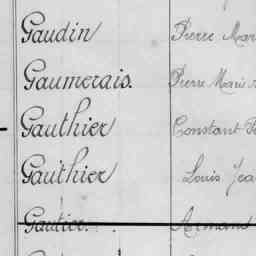 Gaudin Pierre Mar
Gaumerais. Pierre Marie
Gauthier Constant
Gauthier Louis Jea
Gautier. Armand